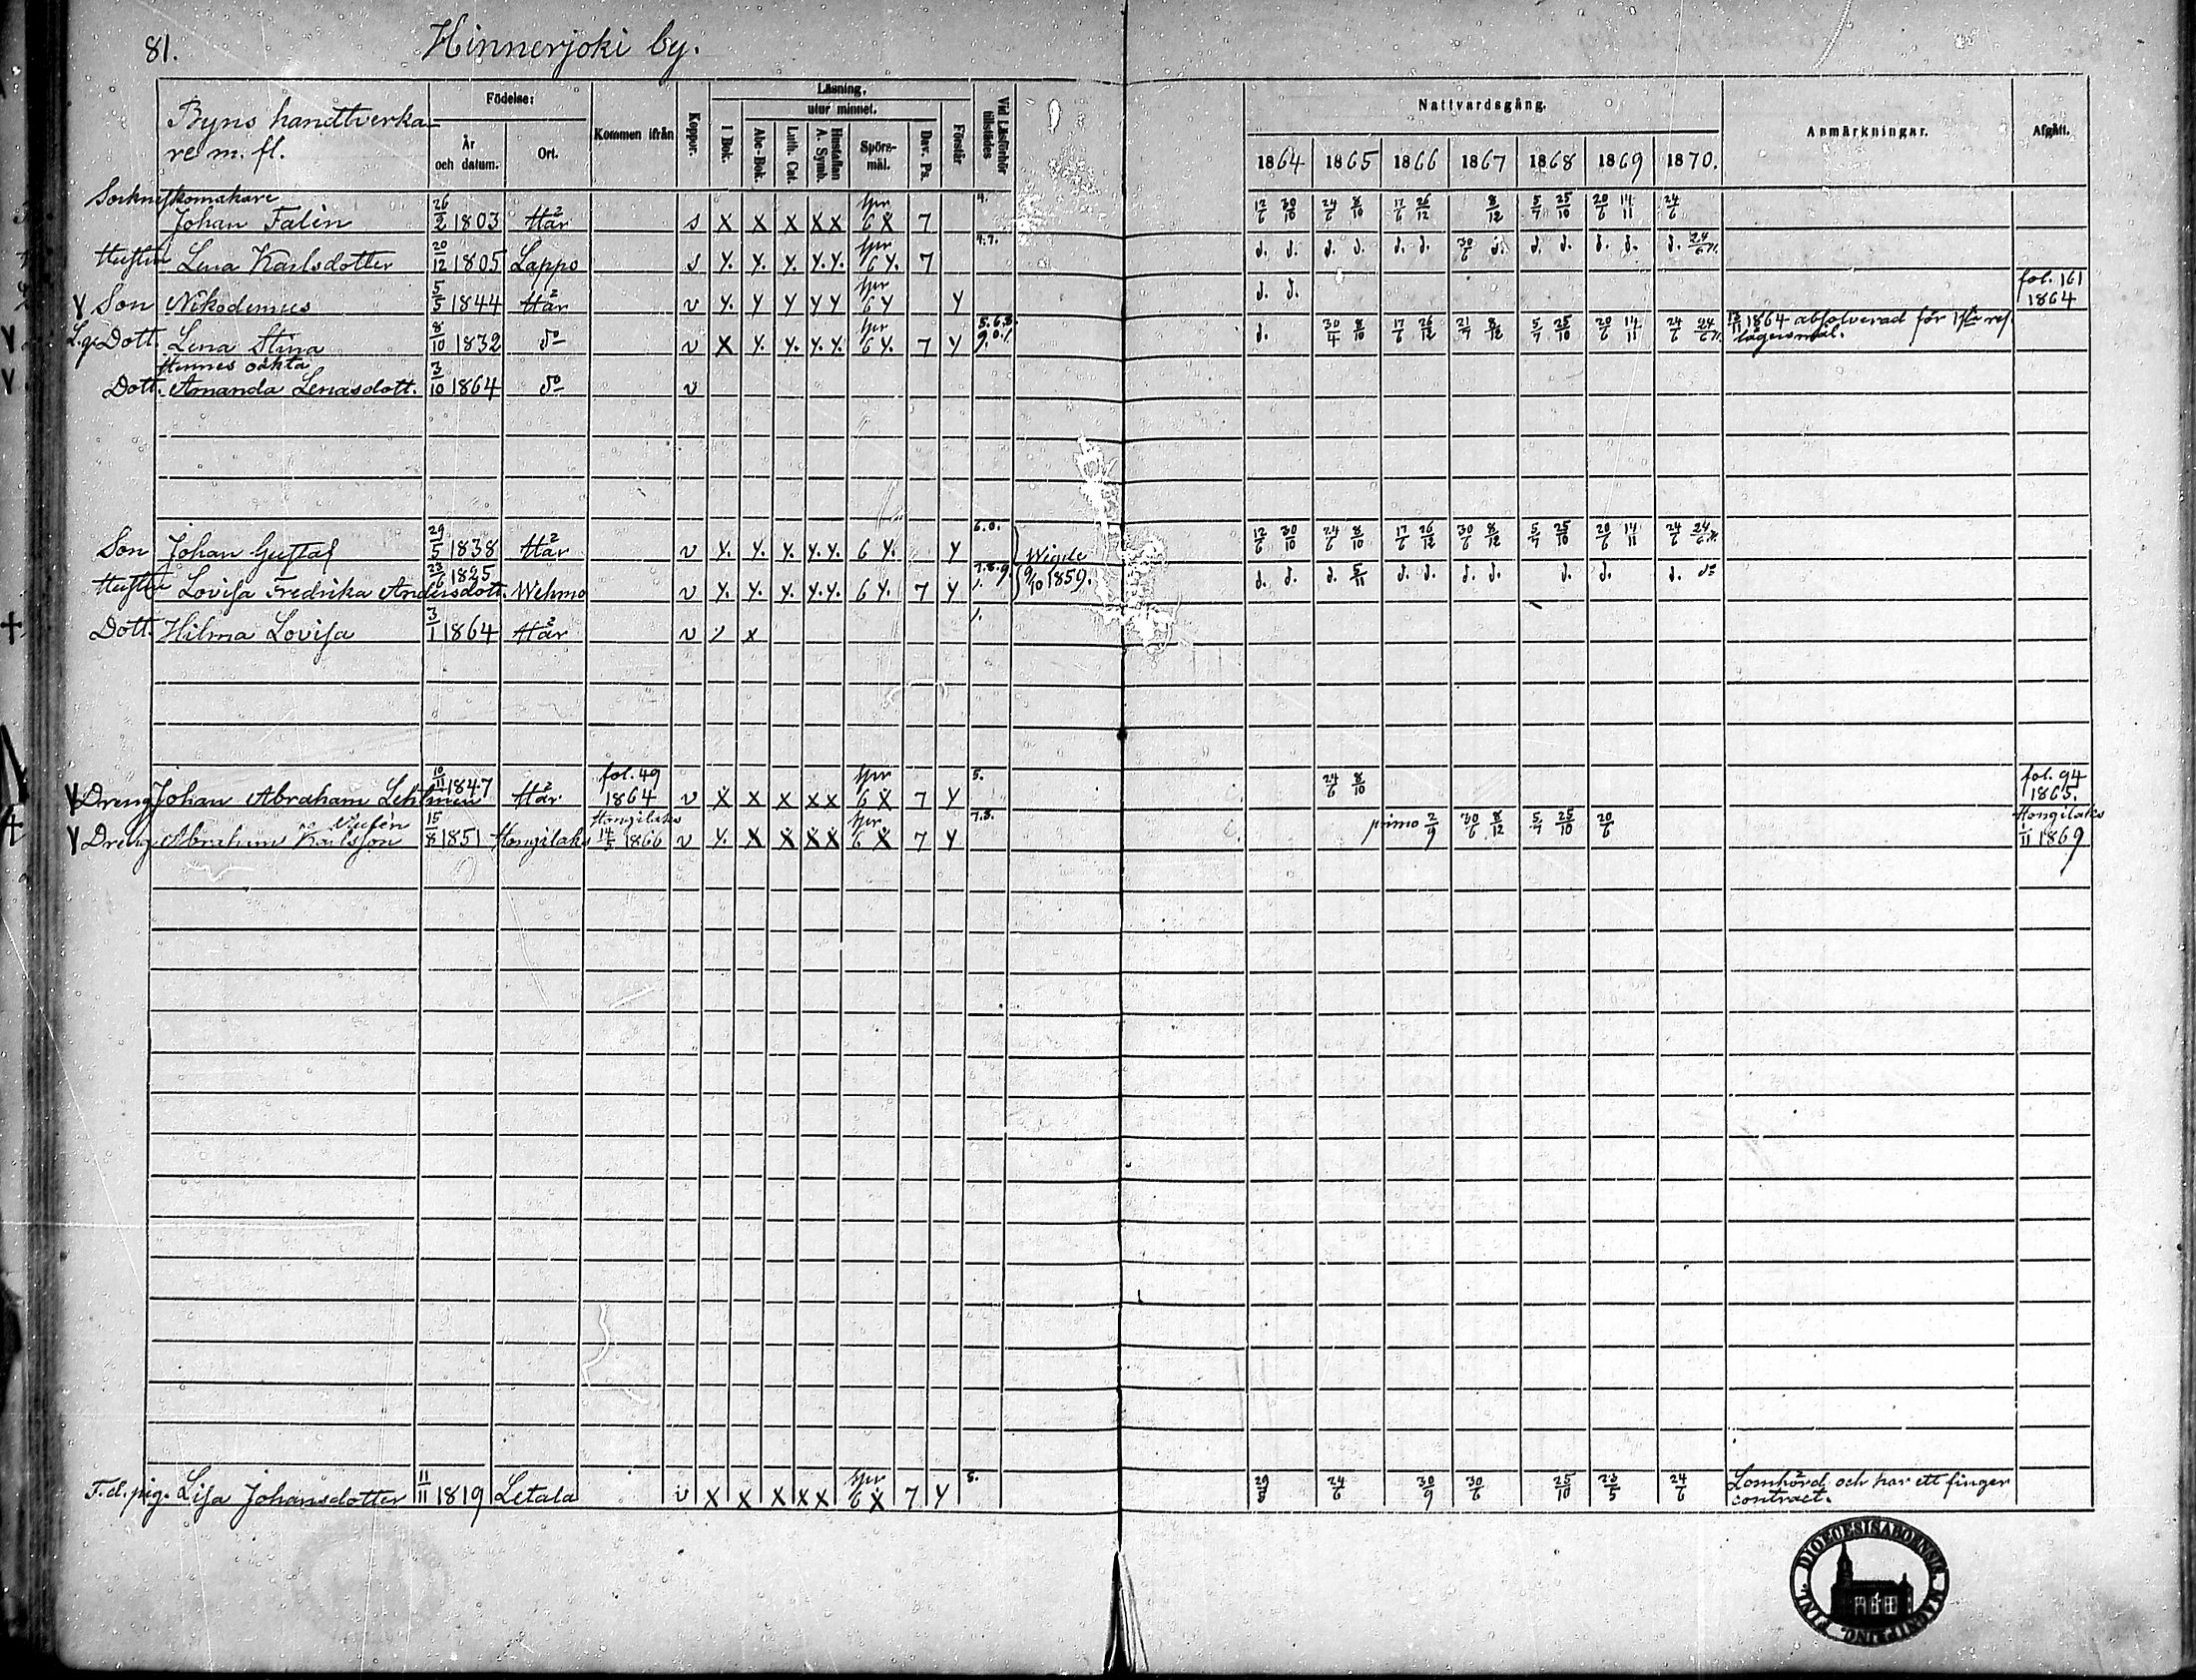 81. Hinnerjoki by.
Byns handtverka-
re m. fl.
Födelse:
År och datum.
Ort.
Kommen ifrån
Koppor.
Läsning,
I Bok.
utur minnet.
Abc-Bok.
Luth. Cat.
Hustaflan A. Symb.
Spörs-mål.
Dav. Ps.
Förstår
Vid Läsförhör tillstädes
Nattvardsgång.
1864 1865 1866 1867 1868 1869 1870.
Anmärkningar.
Afgått.
Sockneskomakare
Johan Falén 26/2 1803 Här s X X X X X 6 X 7 4. 12/6 30/10 24/6 8/10 17/6 26/12 8/12 5/7 25/10 20/6 14/11 24/6
Hustru Lena Karlsdotter 20/12 1805 Lappo s Y. Y. Y. Y. Y. 6 Y. 7 4.7. d. d. d. d. d. d. 30/6 d. d. d. d. d. d.
Son Nikodemus 5/5 1844 Här v Y. Y Y Y Y 6 Y Y d. d. fol. 161 1864
Dott. Lena Stina 8/10 1832 do v X Y. Y. Y. Y. 6 Y. 7 Y d. 30/4 8/10 17/6 26/12 21/7 8/12 5/7 25/10 20/6 14/11 24/6 1864 absolverad för 1sta res
lägersmål.
Hennes oäkta
Dott. Amanda Lenasdott. 3/10 1864 do v
Son Johan Gustaf 29/5 1838 Här v Y. Y. Y. Y. Y. 6 Y. Y 6.0. Wigde 12/6 30/10 24/6 8/10 17/6 26/12 30/6 8/12 5/7 25/10 20/6 14/11 24/6
Hustru Lovisa Fredrika Andersdott. 23/6 1825 Wehmo v Y. Y. Y. Y. Y. 6 Y. 7 Y 9/10 1859. d. d. d. 5/11 d. d. d. d. d. d. d.
Dott. Hilma Lovisa 3/1 1864 Här v x 1.
Dreng Johan Abraham 10/11 1847 Här fol. 49 1864 v X X X X X 6 X 7 Y 5. 24/6 8/10 fol. 94 1865.
Dreng Abraham Karlsson 15/8 1851 Hongilaks Hongilaks 14/5 1866 v Y. X X X X 6 X 7 Y 7.8. primo 2/9 30/6 8/12 5/7 25/10 20/6 Hongilaks 1/11 1869
F. d. pig. Lisa Johansdotter 11/11 1819 Letala v X X X X X 6 X 7 Y 5. 24/6 30/9 30/6 25/10 23/5 24/6 Lomhörd, och har ett finger
contract.